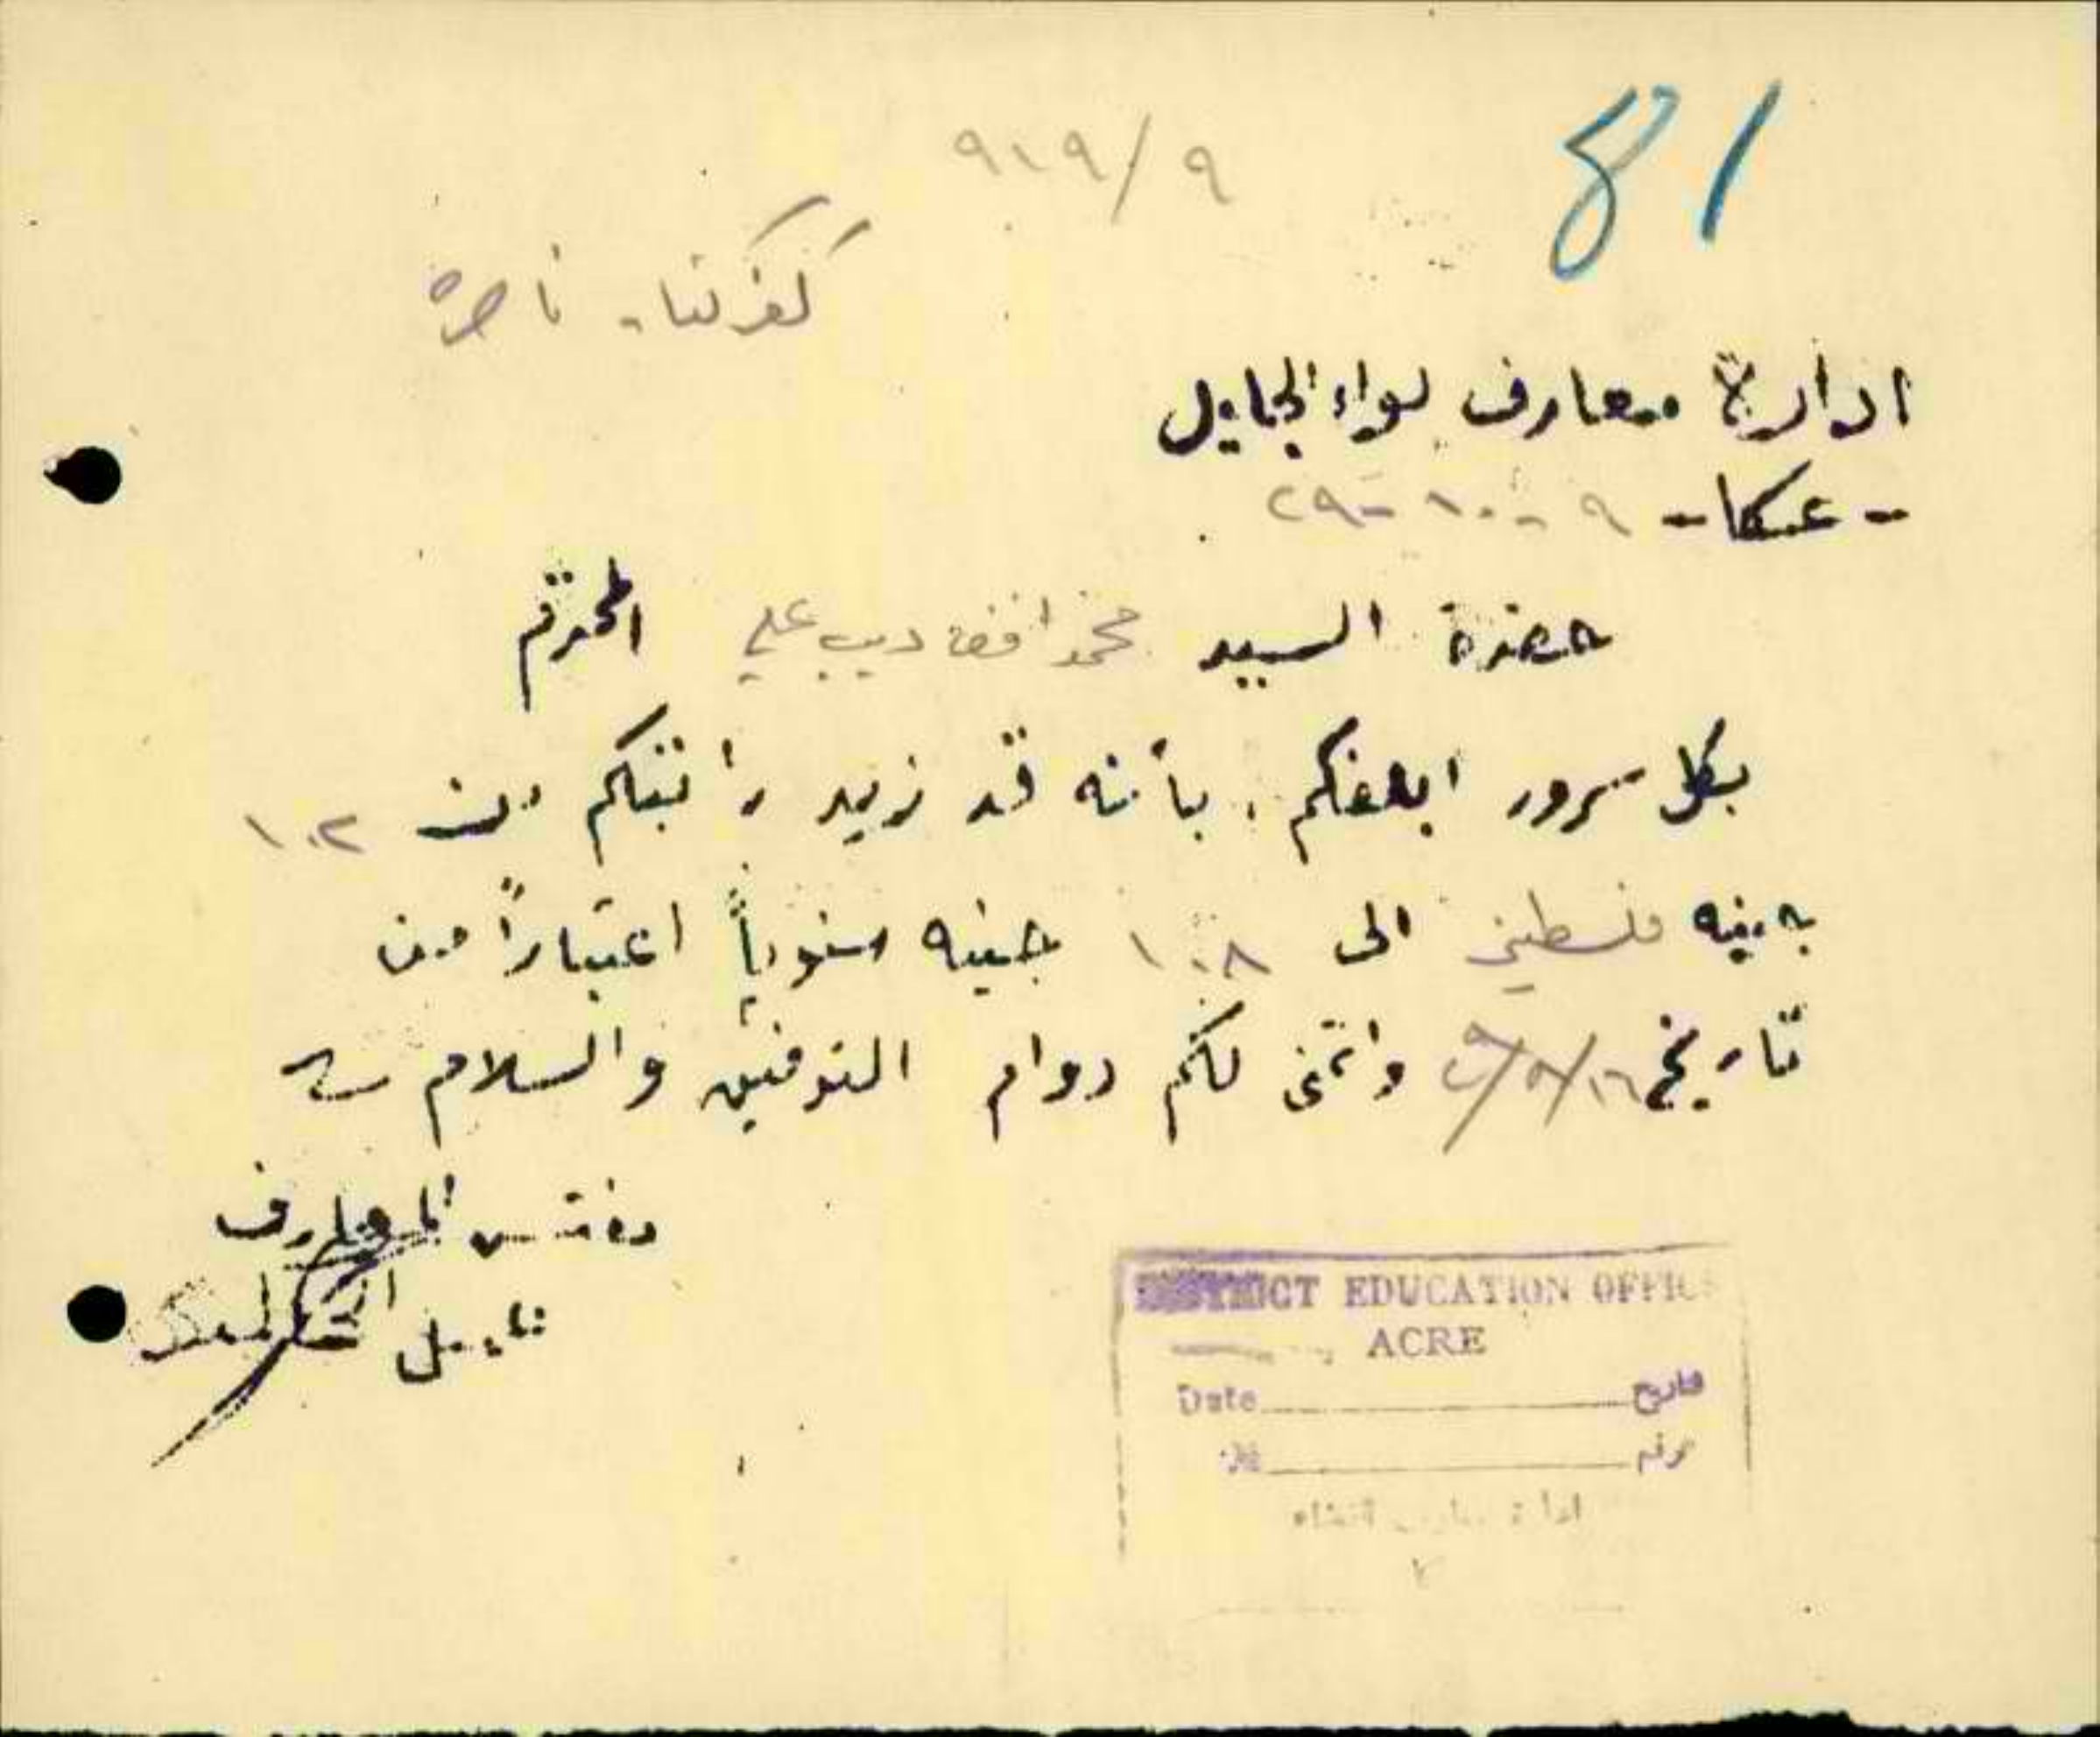 81
٩١٩/٩
كفركنا - ناصره
ادارة معارف لواء الجليل
- عكا - ٩ - ١٠ - ٢٩
حضرة السيد محمد افندي ديب علي المحترم
بكل سرور ابلغكم بأنه قد زيد راتبكم من ١٠٢
جنيه فلسطيني الى ١٠٨ جنيه سنوياً اعتباراً من
تاريخ وأتمنى لكم دوام التوفيق والسلام
مفتش المعارف
DISTRICT EDUCATION OFFICE
ACRE
Date تاريخ
No نمره